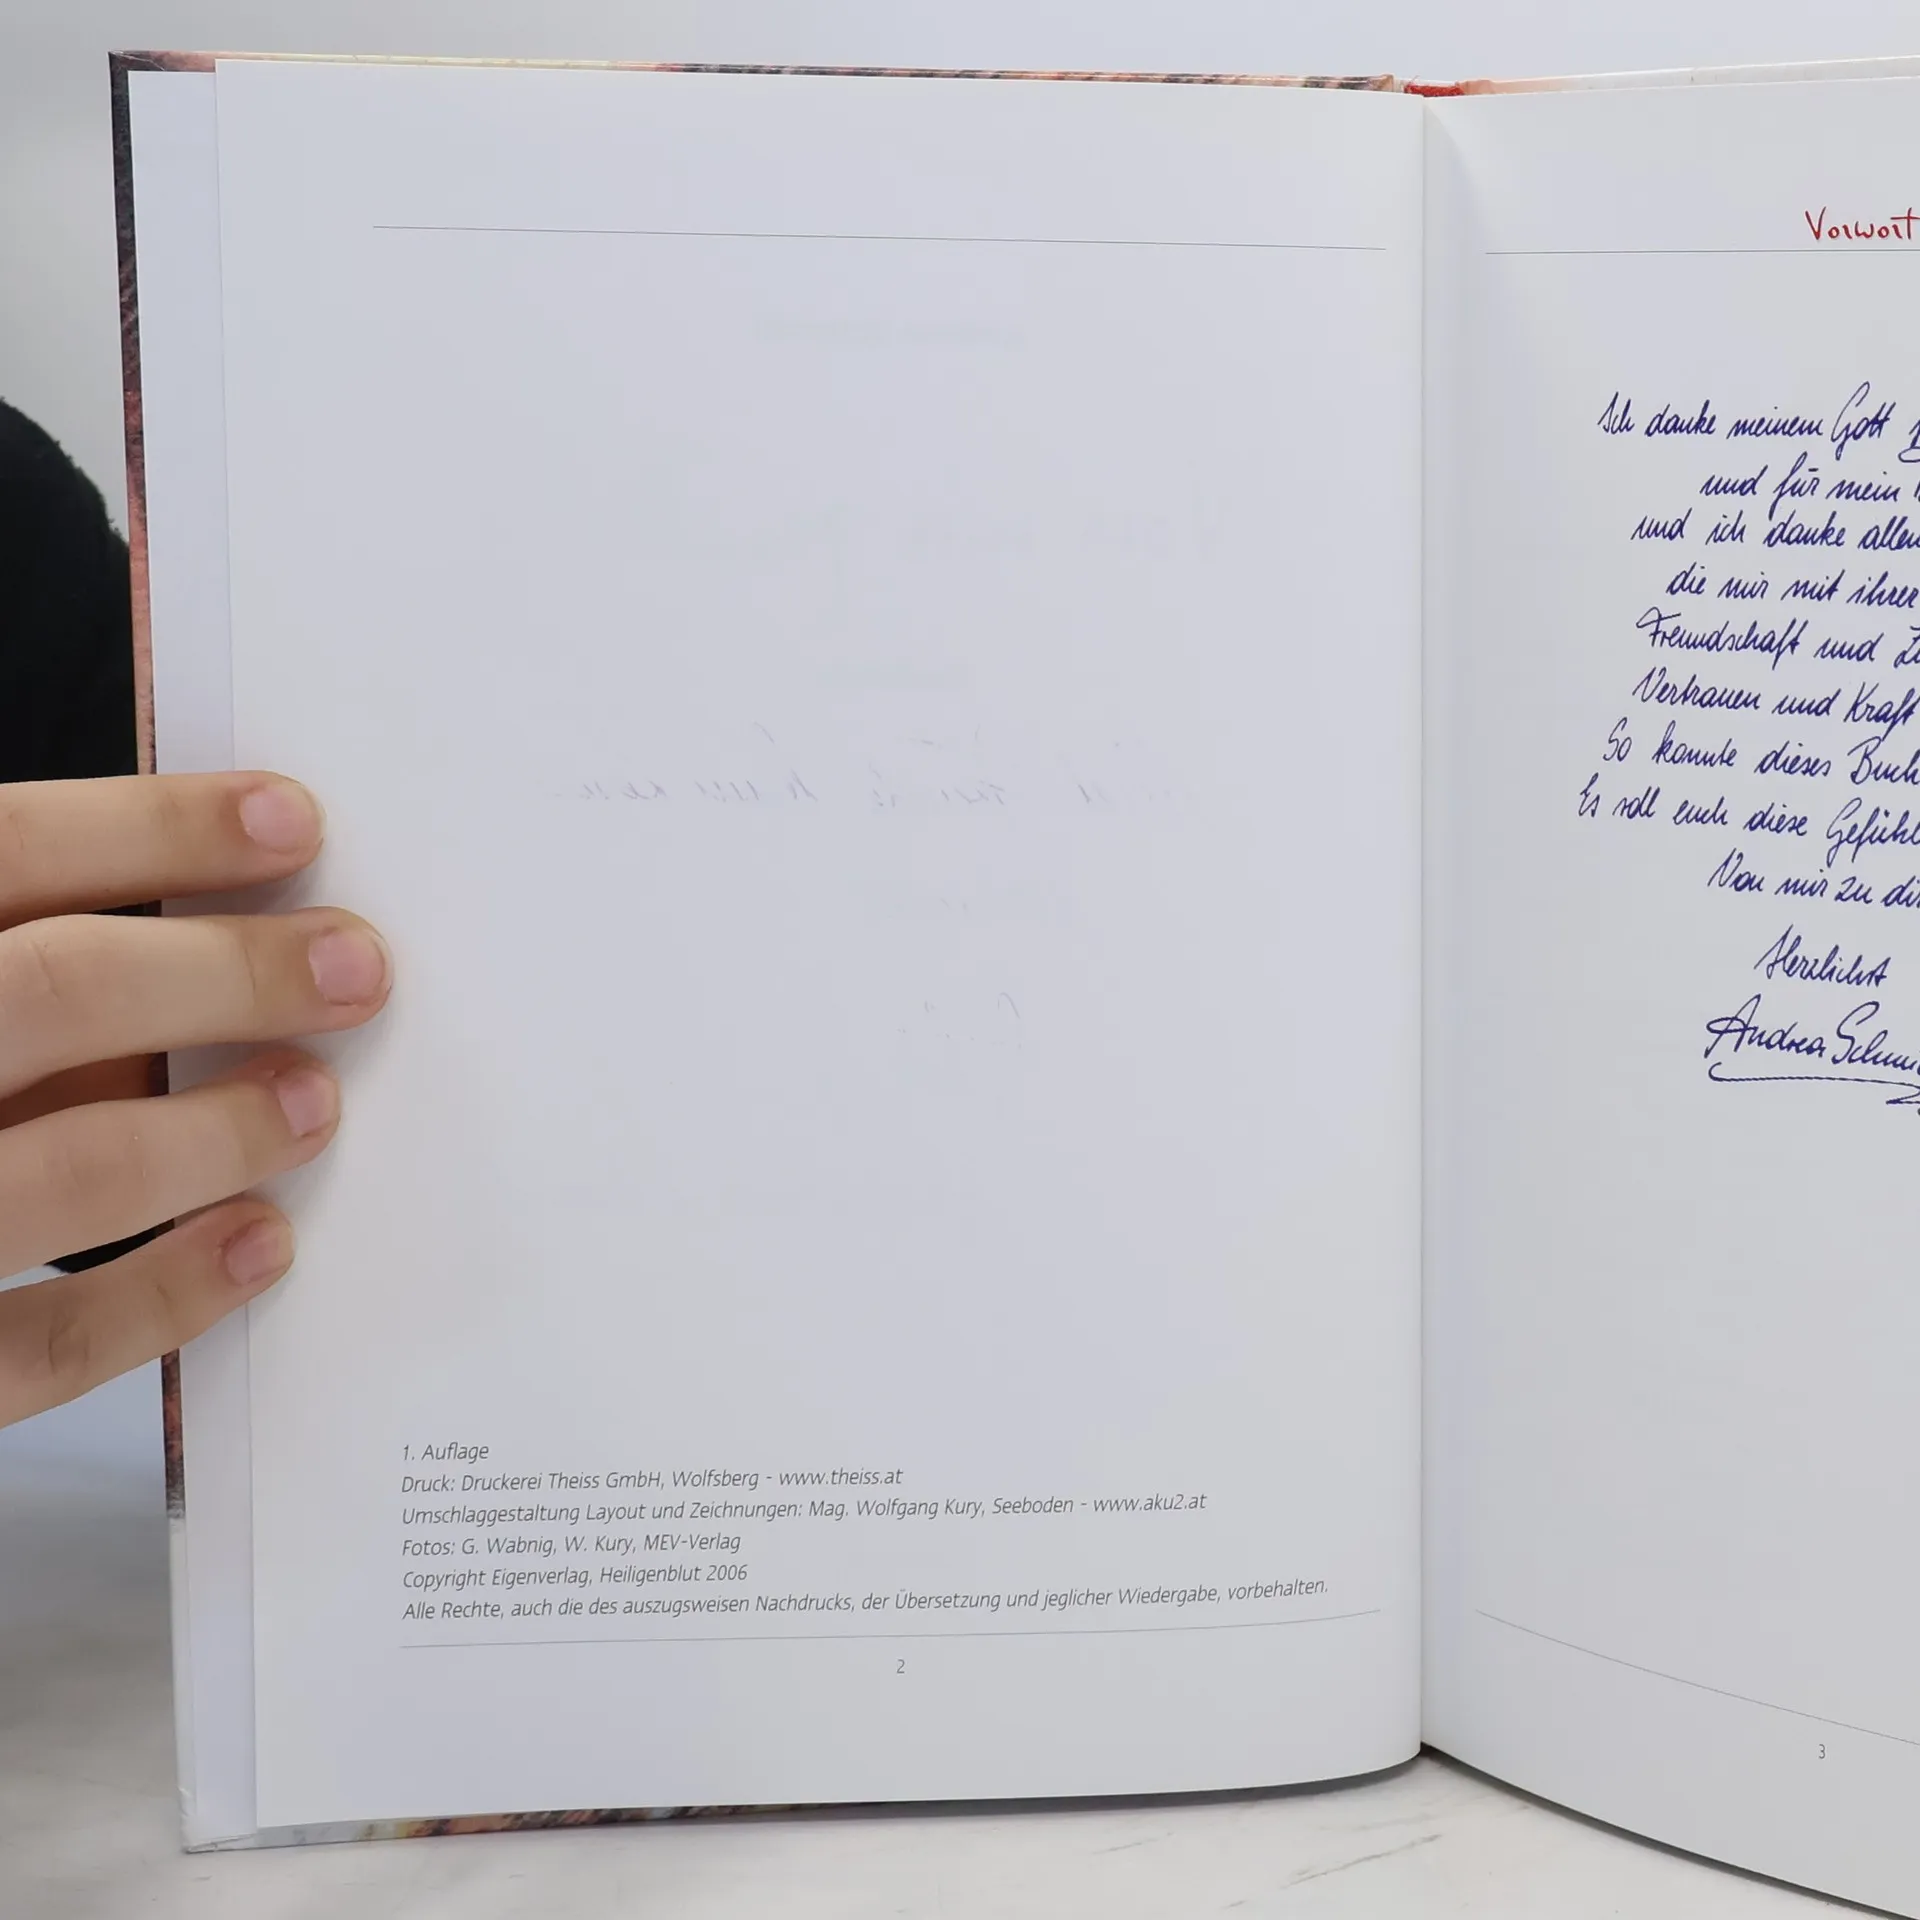 1. Auflage
Druck: Druckerei Theiss GmbH, Wolfsberg - www.theiss.at
Umschlaggestaltung Layout und Zeichnungen: Mag. Wolfgang Kury, Seeboden - www.aku2.at
Fotos: G. Wabnig, W. Kury, MEV-Verlag
Copyright Eigenverlag, Heiligenblut 2006
Alle Rechte, auch die des auszugsweisen Nachdrucks, der Übersetzung und jeglicher Wiedergabe, vorbehalten.
2
Vorwort
Ich danke meinem Gott
und für mein
und ich danke allen
die mir mit ihrer
Freundschaft und
Vertrauen und Kraft
So konnte dieses Buch
Es soll euch diese Gefühle
Von mir zu dir
Herzlichst
Andrea
3